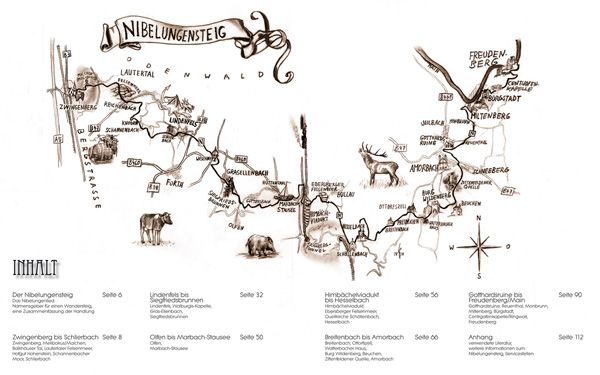 NIBELUNGENSTEIG
ODENWALD
LAUTERTAL
ZWINGENBERG
REICHENBACH
KNODEN
SCHANNENBACH
LINDENFELS
BERGSTRASSE
FÜRTH
GRASELLENBACH
SIEGFRIEDS-
BRUNNEN
OLFEN
MARBACH-
STAUSEE
HIMBÄCHEL-
VIADUKT
BULLAU
FREUDEN-
BERG
CENTGRAFEN-
KAPELLE
BÜRGSTADT
MILTENBERG
GOTTHARDS-
RUINE
AMORBACH
SCHNEEBERG
BURG
WILDENBERG
BEUCHEN
MAIN
N
INHALT
Der Nibelungensteig Seite 6
Das Nibelungenlied
Namensgeber für einen Wandersteig,
eine Zusammenfassung der Handlung
Zwingenberg bis Schlierbach Seite 8
Zwingenberg, Melibokus/Malchen,
Balkhäuser Tal, Lautertaler Felsenmeer,
Hofgut Hohenstein, Schannenbacher
Moor, Schlierbach
Lindenfels bis Seite 32
Siegfriedsbrunnen
Lindenfels, Walburgis-Kapelle,
Gras-Ellenbach,
Siegfriedsbrunnen
Olfen bis Marbach-Stausee Seite 50
Olfen,
Marbach-Stausee
Himbächelviadukt Seite 56
bis Hesselbach
Himbächelviadukt,
Ebersberger Felsenmeer,
Quellkirche Schöllenbach,
Hesselbach
Breitenbach bis Amorbach Seite 66
Breitenbach, Ottorfszell,
Watterbacher Haus,
Burg Wildenberg, Beuchen,
Zittenfeldener Quelle, Amorbach
Gotthardsruine bis Seite 90
Freudenberg/Main
Gotthardsruine, Reuenthal, Monbrunn,
Miltenberg, Bürgstadt,
Centgrafenkapelle/Ringwall,
Freudenberg
Anhang Seite 112
verwendete Literatur,
weitere Informationen zum
Nibelungensteig, Servicestellen